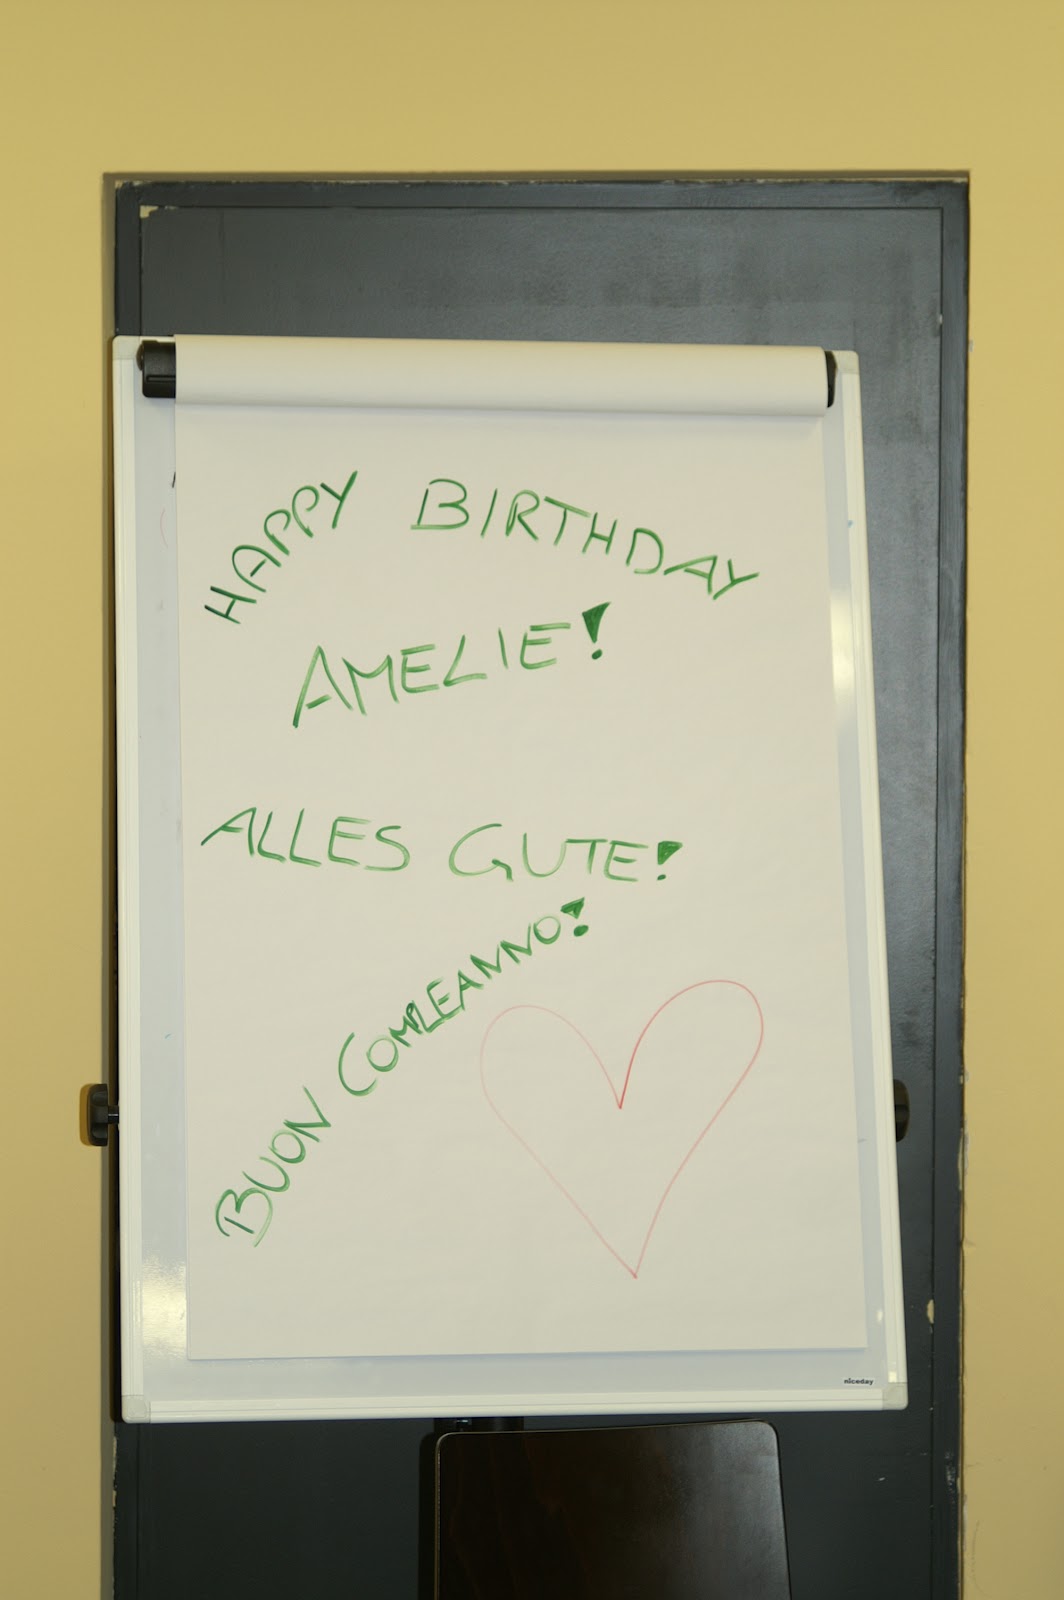 HAPPY BIRTHDAY
AMELIE!
ALLES GUTE!
BUON COMPLEANNO!
niceday